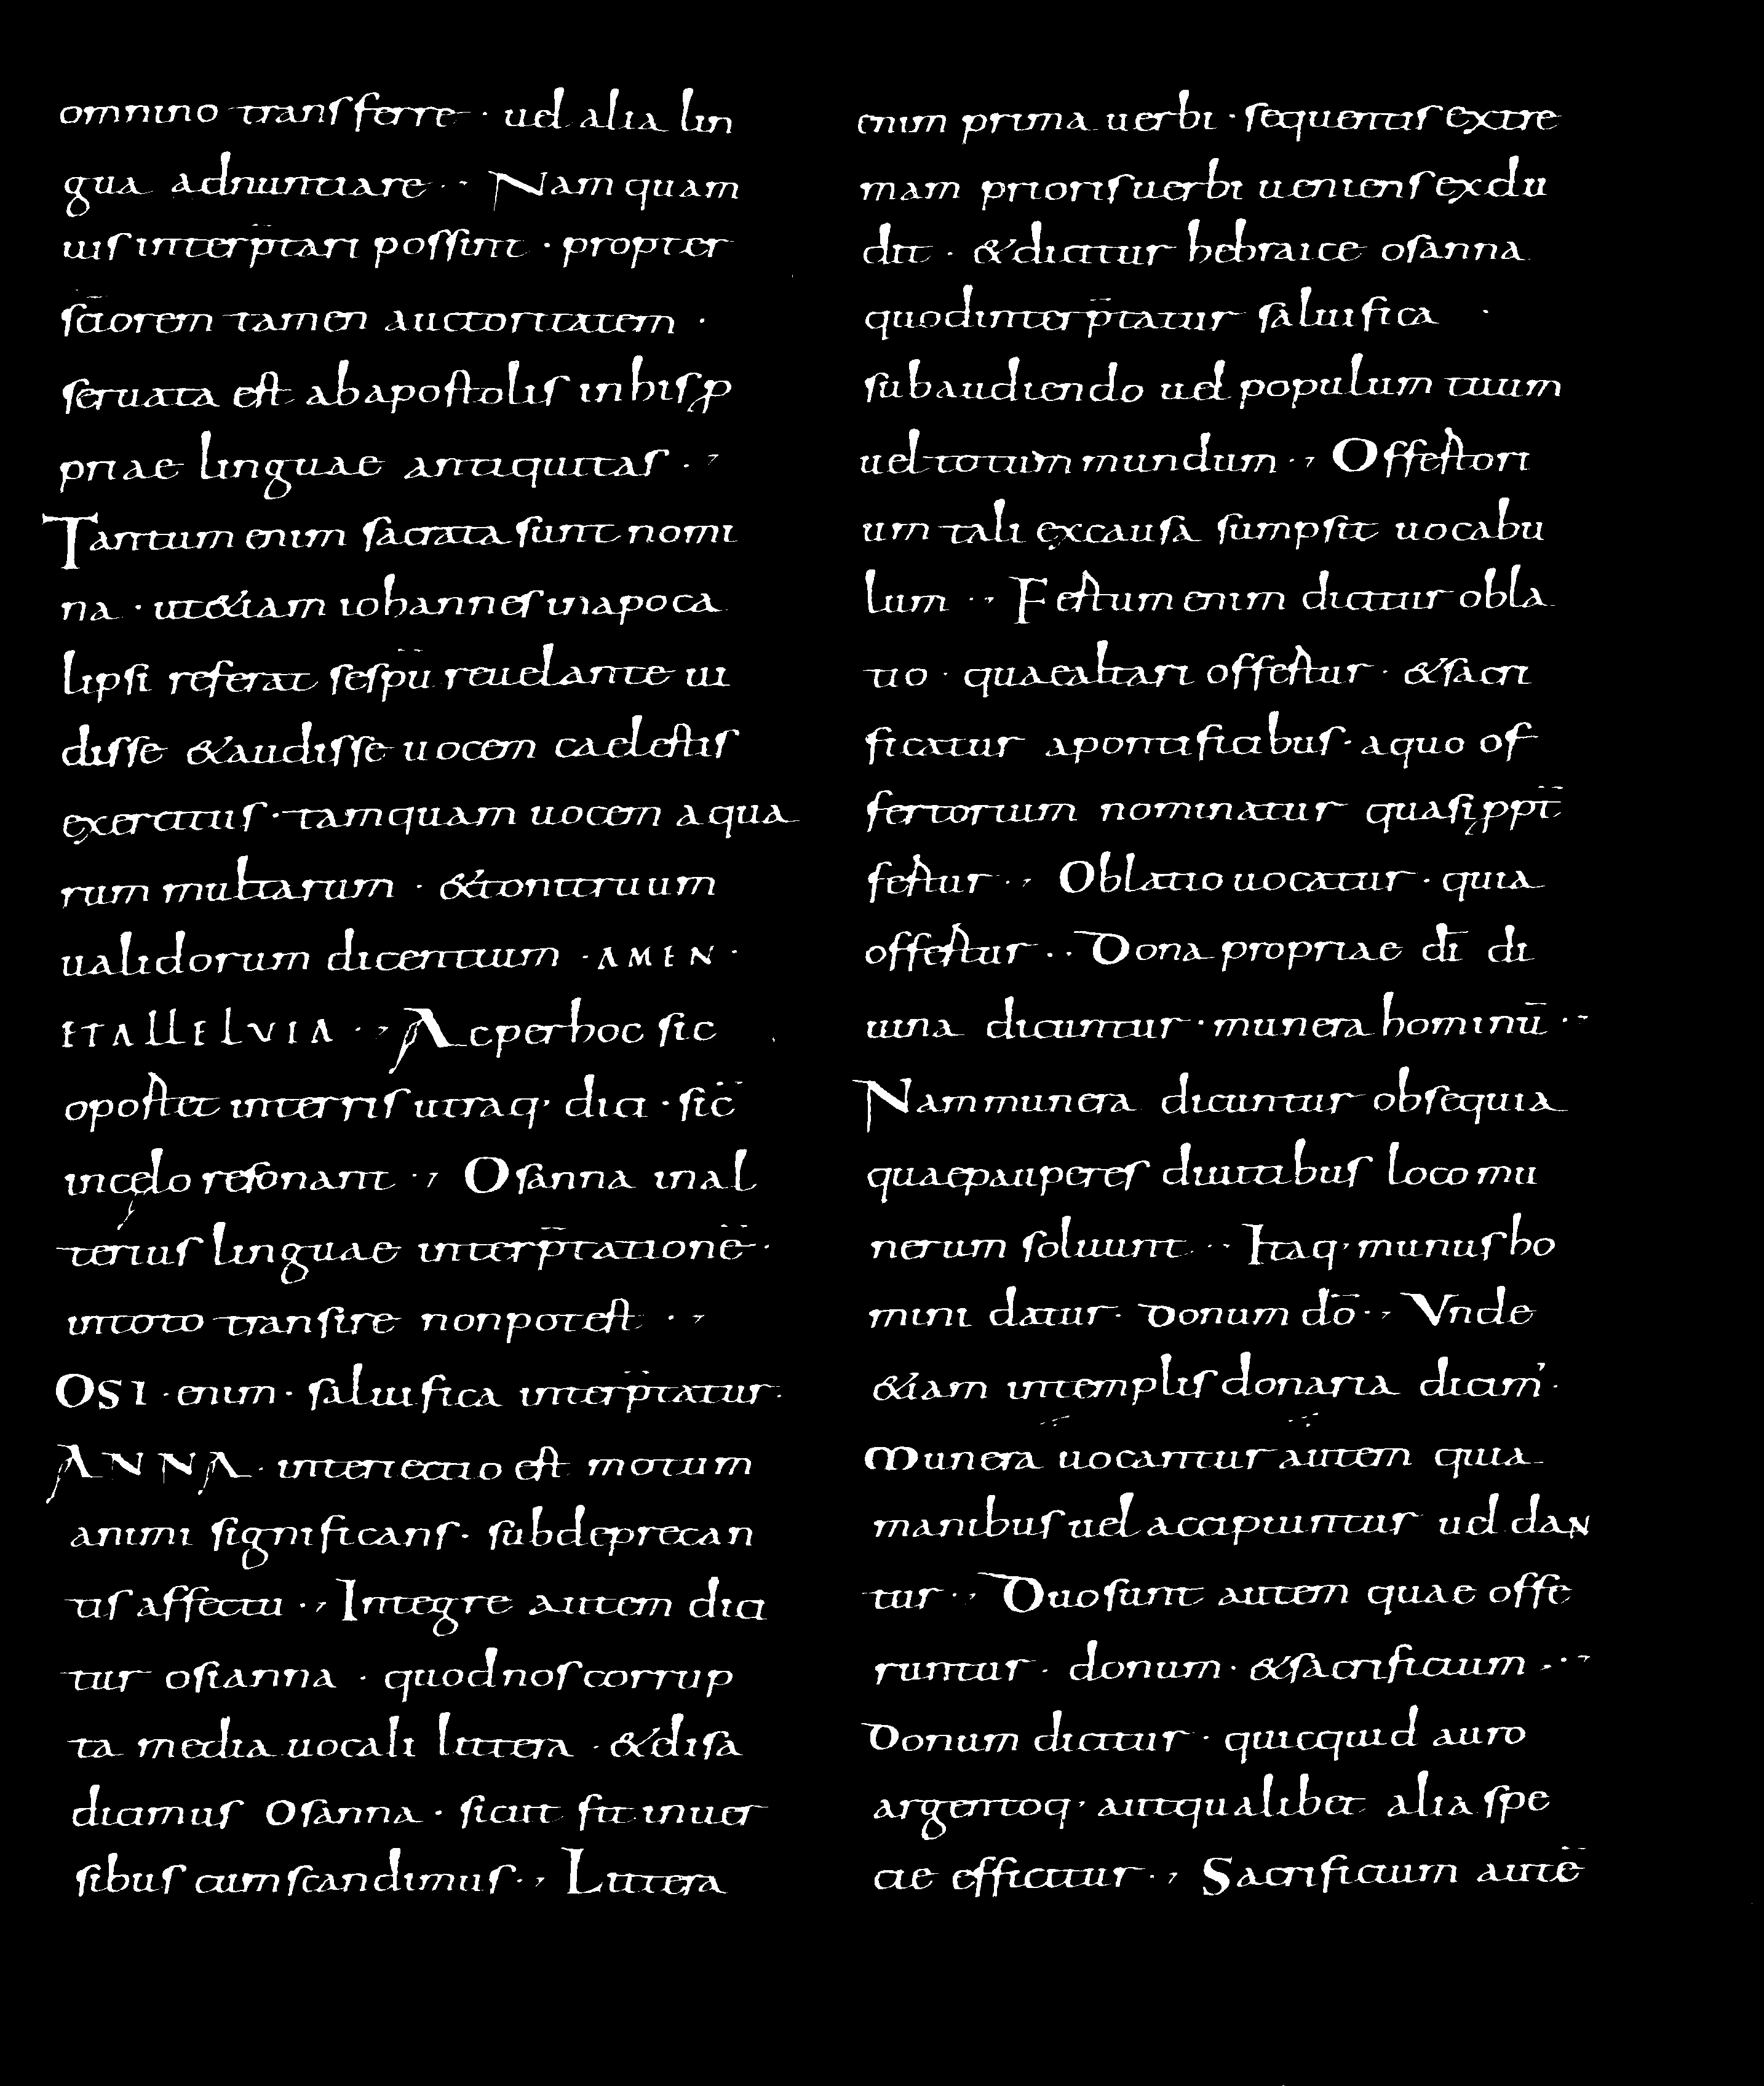 omnino transferre · uel alia lin
gua adnuntiare · · Nam quam
uis interp̄tari possint · propter
sc̄iorem tamen auctoritatem ·
seruata est ab apostolis in his ꝓ
priae linguae antiquitas · ,
Tantum enim sacrata sunt nomi
na · ut &iam iohannes in apoca
lipsi referat se sp̄u reuelante ui
disse & audisse uocem caelestis
exercitus · tamquam uocem aqua
rum multarum · & tonitruum
ualidorum dicentium · AMEN ·
ET ALLELVIA · , Ac per hoc sic
oportet in terris utraq, dici · sic̄
in cęlo resonant · , Osanna in al
terius linguae interp̄tationē ·
in toto transire non potest · ,
OSI · enim · saluifica interp̄tatur ·
ANNA · interiectio est motum
animi significans · sub deprecan
tis affectu · , Integre autem dici
tur osianna · quod nos corrup
ta media uocali littera · & elisa
dicimus osanna · sicut fit in uer
sibus cum scandimus · , Littera
enim prima uerbi · sequentis extre
mam prioris uerbi ueniens exclu
dit · & dicitur hebraice osanna
quod interp̄tatur saluifica ·
subaudiendo uel populum tuum
uel totum mundum · , Offertori
um tali ex causa sumpsit uocabu
lum · , Fertum enim dicitur obla
tio · quae altari offertur · & sacri
ficatur a pontificibus · a quo of
fertorium nominatur quasi ꝓpt̄
fertur · , Oblatio uocatur · quia
offertur · · Dona propriae dī di
uina dicuntur · munera hominū · ·
Nam munera dicuntur obsequia
quae pauperes diuitibus loco mu
nerum soluunt · · Itaq, munus ho
mini datur · donum dō · , Vnde
&iam in templis donaria dicim' ·
Munera uocantur autem quia
manibus uel accipiuntur uel daN
tur · , Duo sunt autem quae offe
runtur · donum · & sacrificium · ·
Donum dicitur · quicquid auro
argentoq, aut qualibet alia spe
cie efficitur · , Sacrificium autē